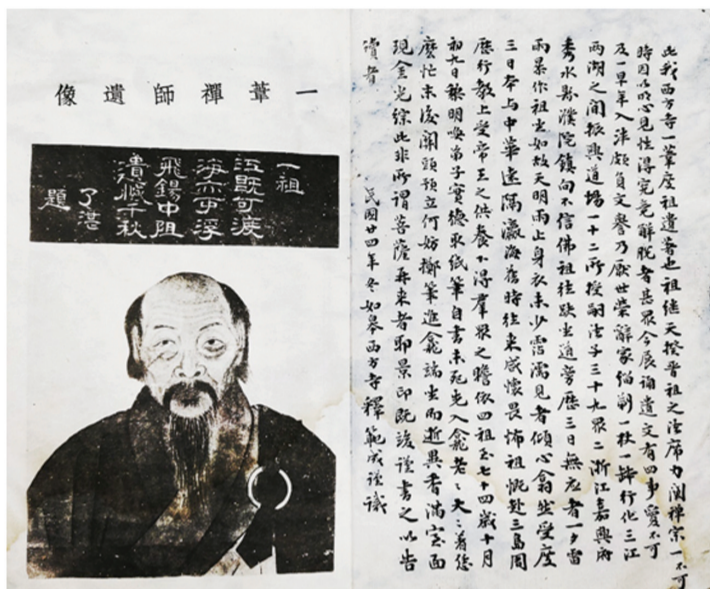 一葦禪師遺像
一祖
江既可渡
海亦可浮
飛錫中阻
遺憾千秋
了湛
題
此我西方寺一葦度祖遺著也祖継天揆晉祖之法席力闡禪宗一
時因以明心見性得究竟解脫者甚眾今展誦遺文有四事實不可
及一早年入泮頗負文譽乃厭世榮辭家緇嗣一杖一缽行化三江
兩湖之間振興道場一十二所授嗣法子三十九眾二浙江嘉興府
秀水縣濮院鎮向不信佛祖往趺坐道旁歷三日無應者一夕雷
雨暴作祖坐如故天明雨止身衣未少霑濡見者傾心翕然受度
三日本与中華遠隔瀛海舊時往來咸懷畏怖祖赴三島周
歷行教上受帝王之供養下得羣眾之瞻依四祖至七十四歲十月
初九日黎明喚弟子實德取紙筆自書未死先入龕老〻大〻着甚
麼忙末後關頭預立何妨擲筆進龕端坐而逝異香滿室面
現金光綜此非所謂菩薩再來者耶景印既竣謹書之以告
讀者
民國廿四年冬如皋西方寺釋範成謹識